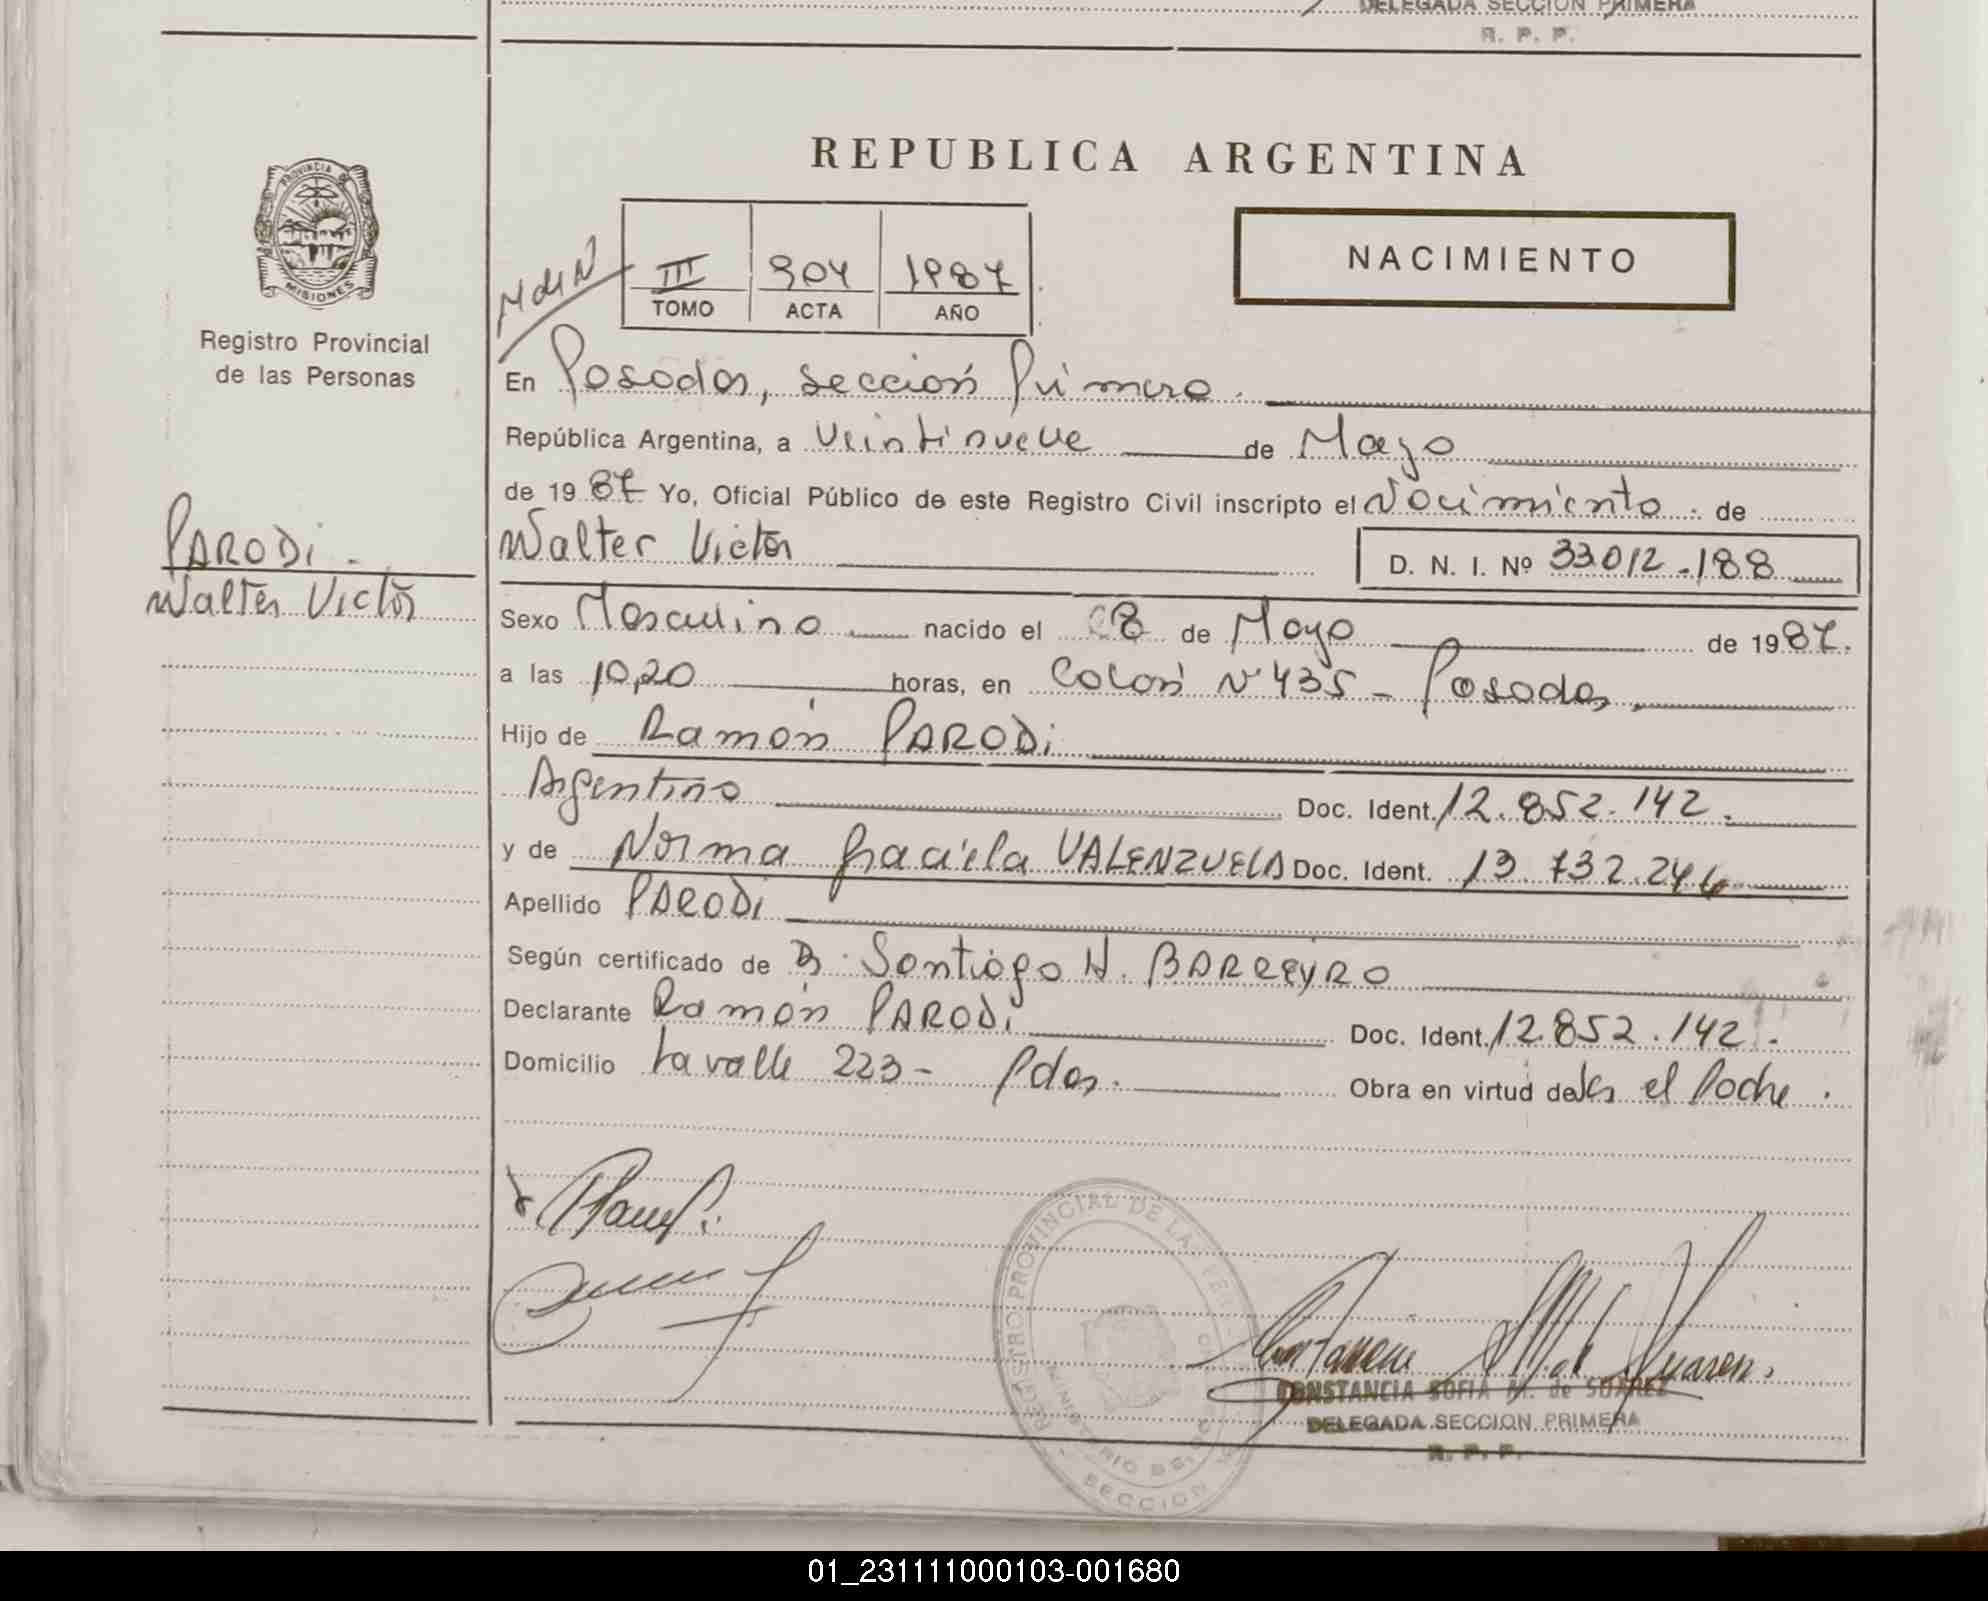 DELEGADA SECCION PRIMERA
R. P. P.
PROVINCIA DE
MISIONES
Registro Provincial
de las Personas
REPUBLICA ARGENTINA
NACIMIENTO
III 904 1987
TOMO ACTA AÑO
En Posadas, sección Primera.
República Argentina, a veintinueve de Mayo
de 1987 Yo, Oficial Público de este Registro Civil inscripto el Nacimiento. de
PARODi.
Walter Victor
Walter Victor D. N. I. Nº 33.012.188
Sexo Masculino nacido el 8 de Mayo de 1987.
a las 10,20 horas, en Colón Nº 435 - Posadas.
Hijo de Ramón PARODi
Argentino Doc. Ident. 12.852.142.
y de Norma Graciela VALENZUELA Doc. Ident. 13.732.244
Apellido PARODi
Según certificado de Dr. Santiago H. BARREYRO
Declarante Ramón PARODi Doc. Ident. 12.852.142.
Domicilio Lavalle 223 - Pdas. Obra en virtud de el Padre.
REGISTRO PROVINCIAL DE LA
MINISTERIO DE
SECCION
CONSTANCIA SOFIA M. de SUAREZ
DELEGADA SECCION PRIMERA
R. P. P.
01_231111000103-001680